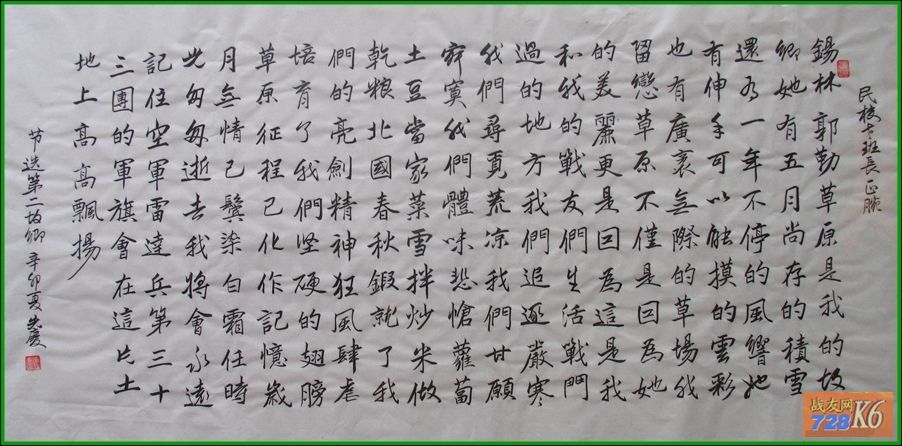 民校七班長正腕
錫林郭勒草原是我的故
鄉她有五月尚存的積雪
還有一年不停的風響她
有伸手可以触摸的雲彩
也有廣袤無際的草場我
留戀草原不僅是因為她
的美麗更是因為這是我
和我的戰友們生活戰鬥
過的地方我們追逐嚴寒
我們尋覓荒凉我們甘願
寂寞我們體味悲愴蘿蔔
土豆當家菜雪拌炒米做
乾糧北國春秋鍛就了我
們的亮劍精神狂風肆虐
培育了我們坚硬的翅膀
草原征程已化作記憶歲
月無情已鬓染白霜任時
光匆匆逝去我將會永遠
記住空軍雷達兵第三十
三團的軍旗會在這片土
地上高高飄揚
节选第二故鄉 辛卯夏
战友网
728K6